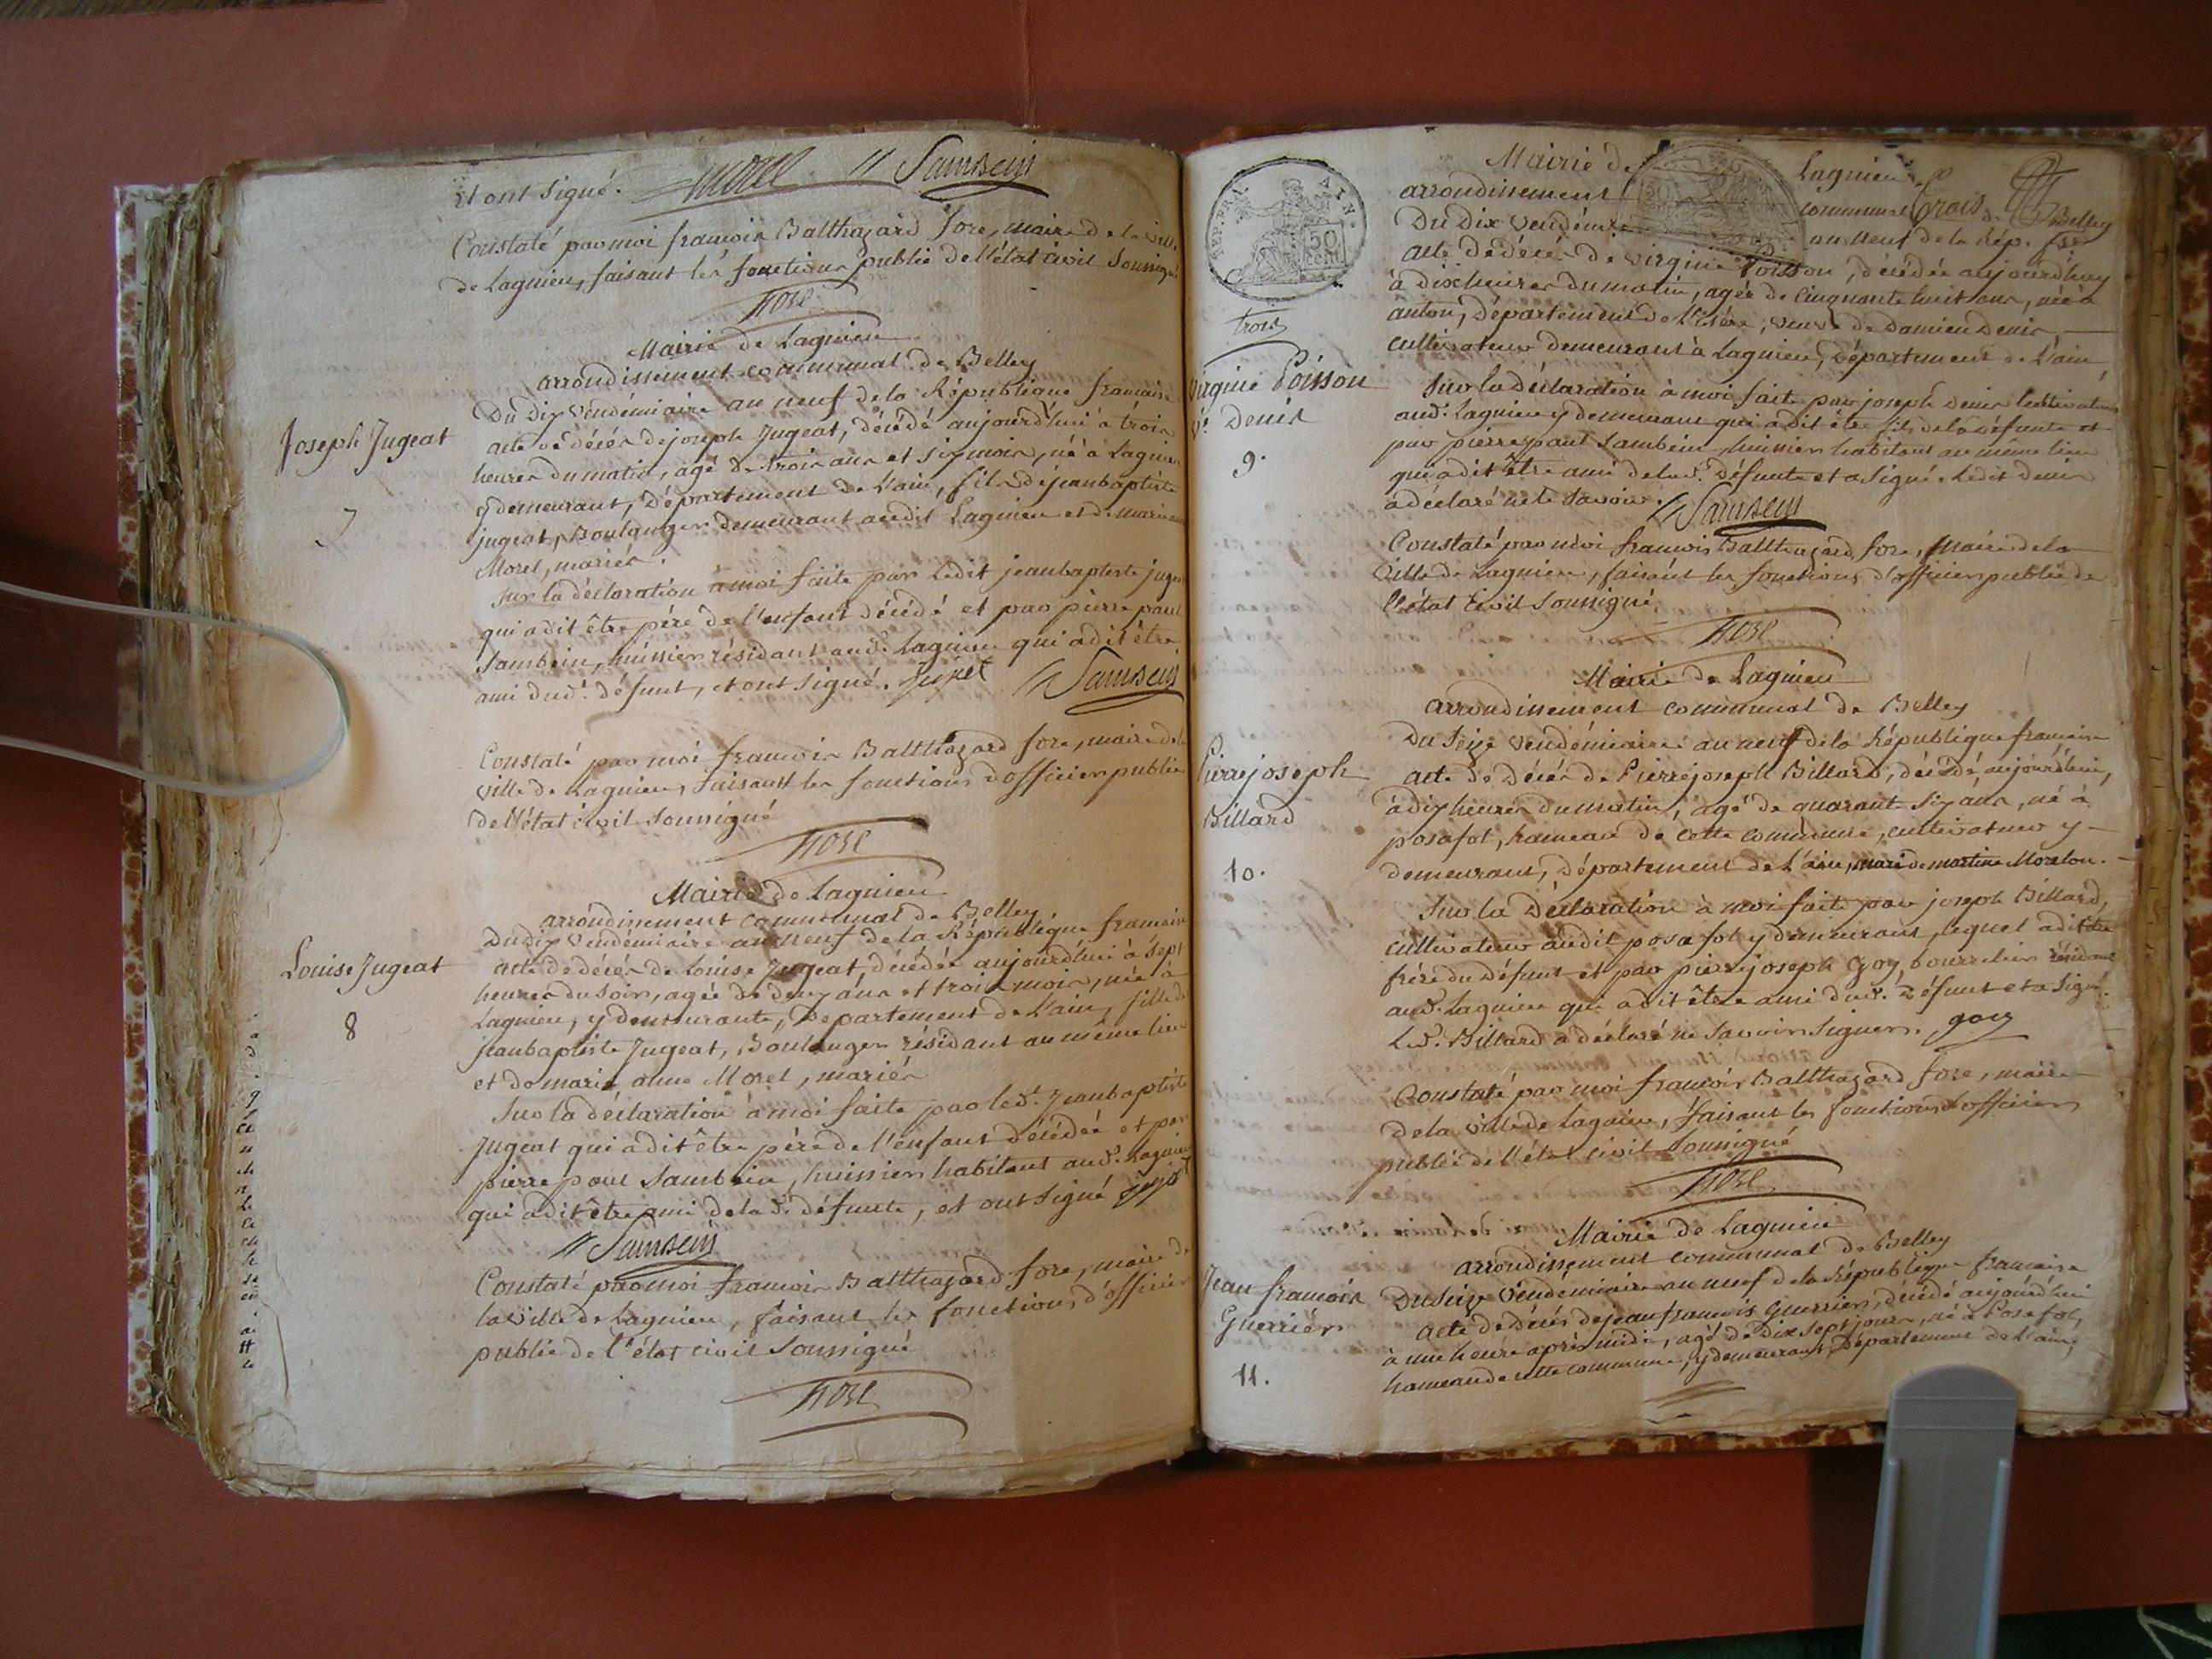 et ont signé. Morel Sambein
Constaté par moi françois Balthazard fore, maire de la ville
de Lagnieu, faisant les fonctions public de l'état civil soussigné
fore
Mairie de Lagnieu
arrondissement communal de Belley
Joseph Jugeat
7
Du dix vendémiaire an neuf de la République française
acte de décés de joseph Jugeat, décédé aujourd'hui à trois
heures du matin, agé de trois ans et six mois, né à Lagnieu
y demeurant, département de l'ain, fils de jeanbaptiste
jugeat, Boulanger demeurant audit Lagnieu et de marie anne
Morel, mariés.
Sur la déclaration à moi faite par ledit jeanbaptiste jugeat
qui a dit être pére de l'enfant décédé et par pierre paul
Sambein, huissier résidant aud. Lagnieu qui a dit être
ami dud. défunt, et ont signé. Sambein
Constaté par moi françois Balthazard fore, maire de la
ville de Lagnieu, faisant les fonctions d'officier public
de l'état civil soussigné
fore
Mairie de Lagnieu
arrondissement communal de Belley
Louise Jugeat
8
Du dix vendémiaire an neuf de la République française
acte de décés de Louise Jugeat, décédée aujourd'hui à sept
heures du soir, agée de deux ans et trois mois, née à
Lagnieu, y demeurante, Département de l'ain, fille de
jeanbaptiste Jugeat, Boulanger résidant au même lieu
et de marie anne Morel, mariés
Sur la déclaration à moi faite par led. Jeanbaptiste
Jugeat qui a dit être pére de l'enfant décédée et par
pierre paul Sambein, huissier habitant aud. Lagnieu
qui a dit être ami de lad. défunte, et ont signé
Sambein
Constaté par moi françois Balthazard fore, maire de
la ville de Lagnieu, faisant les fonctions d'officier
public de l'état civil soussigné
fore
REP. FRA. AIN.
50 CENT.
trois
Mairie de Lagnieu
arrondissement communal de Belley
Du dix vendémiaire an neuf de la Rép. fse
Virgine Poisson
Ve. Denis
9.
acte de décés de virgine Poisson, décédée aujourd'huy
à dix heures du matin, agée de cinquante huit ans, née à
anton, département de l'Isére, veuve de Damien Denis,
cultivateur demeurant à Lagnieu, Département de l'ain
Sur la déclaration à moi faite par joseph Denis cultivateur
aud. Lagnieu y demeurant qui a dit être fils de la défunte et
par pierre paul Sambein, huissier habitant au même lieu
qui a dit être ami de lad. défunte et a signé. ledit denis
a déclaré ne le savoir. Sambein
Constaté par moi françois Balthazard fore, Maire de la
ville de Lagnieu, faisant les fonctions d'officier public de
l'état civil soussigné.
fore
Mairie de Lagnieu
arrondissement communal de Belley
Pierrejoseph
Billard
10.
Du seize vendémiaire an neuf de la République française
acte de décés de Pierrejoseph Billard, décédé aujourd'hui,
à dix heures du matin, agé de quarant six ans, né à
posafol, hameau de cette commune, cultivateur y
demeurant, département de l'ain, mari de martine Morelon.
Sur la Déclaration à moi faite par joseph Billard,
cultivateur audit posafol y demeurant, lequel a dit être
frére du défunt et par pierrejoseph Goy, bourrelier résidant
aud. Lagnieu qui a dit être ami dud. défunt et a signé.
Led. Billard a déclaré ne savoir signer. goy
Constaté par moi françois Balthazard fore, maire
de la ville de Lagnieu, faisant les fonctions d'officier
public de l'état civil soussigné
fore
Mairie de Lagnieu
arrondissement communal de Belley
Jean françois
Guerrier
11.
Du seize vendémiaire an neuf de la République française
acte de décés de jean françois Guerrier, décédé aujourd'hui
à une heure après midi, agé de dix sept jours, né à Posafol,
hameau de cette commune, y demeurant, Département de l'ain,